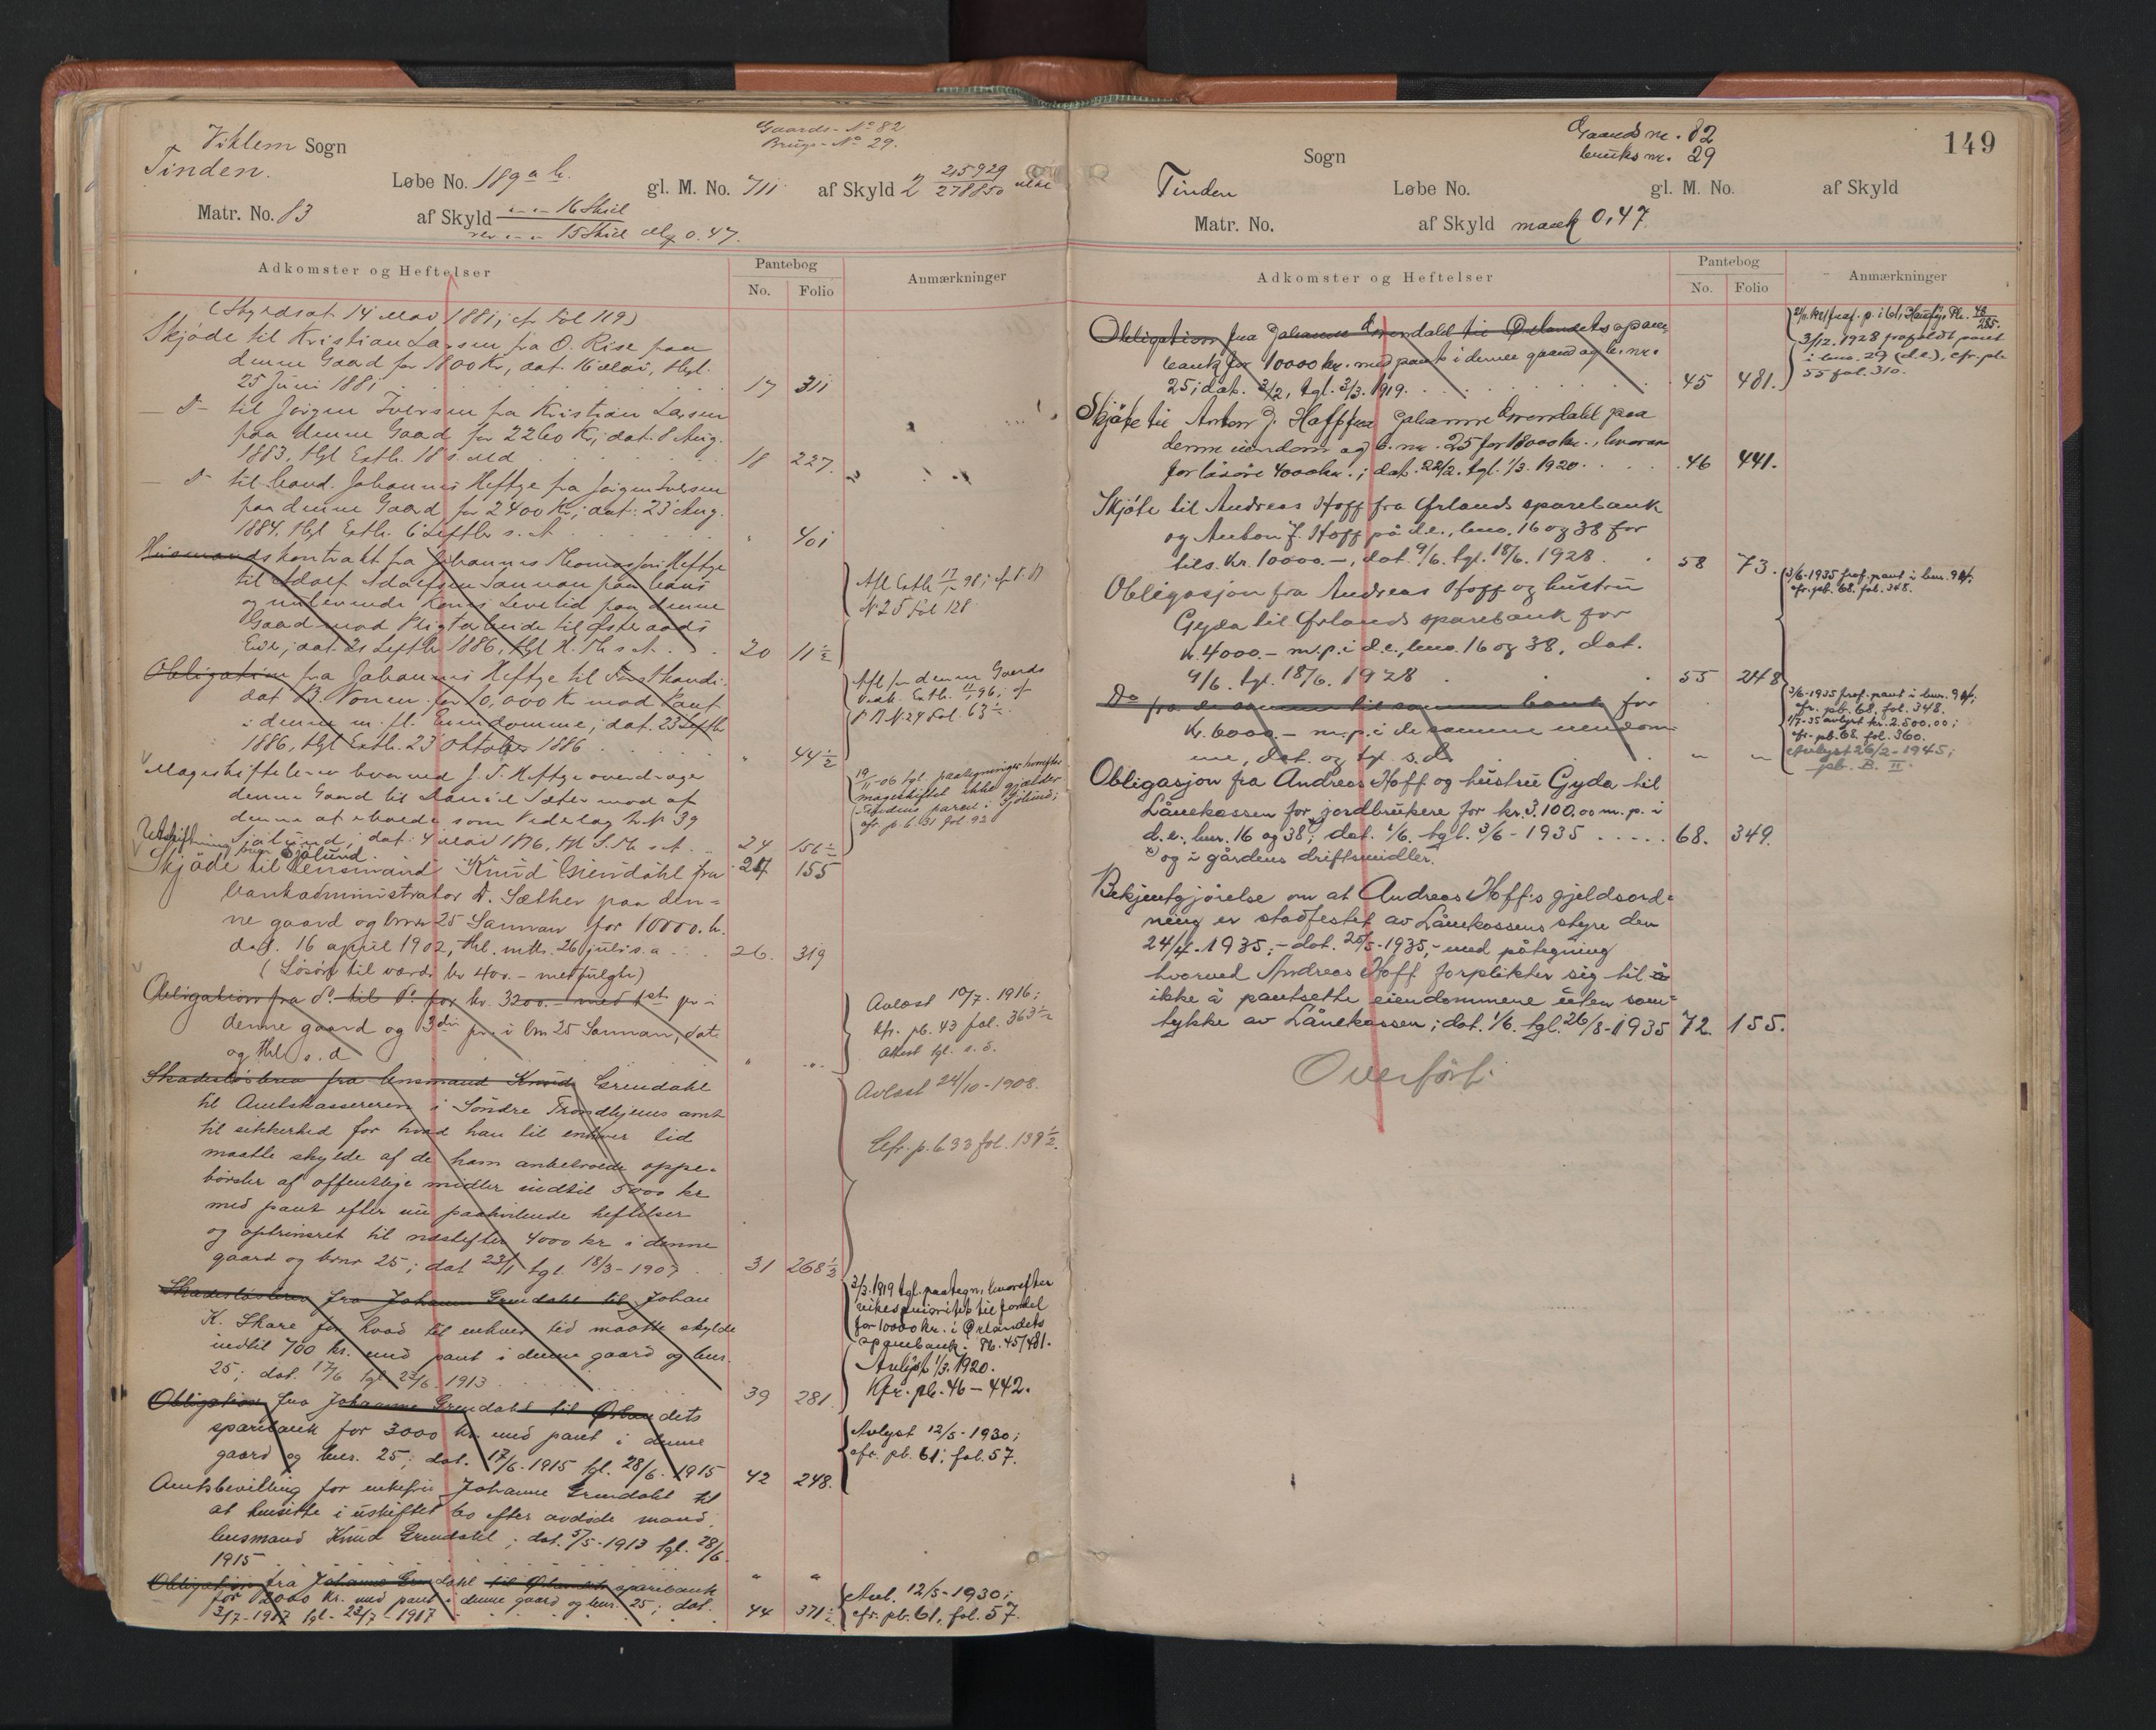 Viklem Sogn
Tinden.
Gaards-No 82
Brugs-No 29.
Løbe No. 189 a b.
gl. M. No. 711.
af Skyld 2 215929/278850
Matr. No. 83
af Skyld - - 16 Skill
rev - - 15 Skill 0.47.
Adkomster og Heftelser
Pantebog
No. Folio
Anmærkninger
(Skyldsat 14 Mai 1881, cfr Fol 119)
Skjøde til Kristian Larsen fra O. Rise paa
denne Gaard for 1800 Kr, dat. 16 Mai, thgl.
25 Juni 1881 17 311
— do — til Jørgen Iversen fra Kristian Larsen
paa denne Gaard for 2260 Kr, dat. 8 Aug.
1883, thgl Extb. 18 s. Md 18 227.
— do til Cand. Johannes Heftye fra Jørgen Iversen
paa denne Gaard for 2400 Kr, dat. 23 Aug.
1884, thgl Extb. 6 Septbr s. A. " 401
Husmandskontrakt fra Johannes Thomassen Heftye
til Adolf Adolfsen Sannan paa hans
og nulevende Kones Levetid paa denne
Gaard mod Pligtarbeide til Østeraads
Eier, dat. 21 Septbr 1886, thgl H. Th s. A. 20 11½
Afl Extb 98; cfr P. B
N 25 Fol 128
Obligation fra Johannes Heftye til
dat B. Nonen for 10,000 Kr mod Pant
i denne m. fl. Eiendomme, dat. 23 Septbr
1886, thgl Extb. 23 Oktober 1886 " 44½
Afl for denne Gaards
Vedk. Extb. 96, cfr
P B. N 24 Fol. 63½
Mageskiftebrev hvorved J. T. Heftye overdrager
denne Gaard til Daniel Sæter mod at
denne afhænde som Vederlag L.N. 39
Sjølund, dat. 4 Mai 1896, thl S. Th s. A. 24 156½
19/11-06 tgl. paategning hvorefter
mageskiftet ikke gjælder
parcel i Sjølund;
cfr. p. b. 31 fol. 92
Udskiftning Sjølund. 27 155
Skjøde til lensmand Knud Grendahl fra
bankadministrator D. Sæther paa den-
ne gaard og brnr 25 Sannan for 10000. kr.
dat. 16 april 1902, thl. mtl. 26 juli s. a 26. 319
(Løsøre til værdi kr 400. - medfulgte)
Obligation fra do til do for kr. 3200. - med 1st pr i
denne gaard og 3die pr. i bn 25 Sannan, dat.
og thl s. d " "
Avløst 10/7 - 1916;
kfr. pb. 43 fol. 363½
Attest tgl. s. d.
Skadesløsbrev fra lensmand Knud Grendahl
til Amtskassereren i Søndre Trondhjems amt
til sikkerhed for hvad han til enhver tid
maatte skylde af de ham anbetroede oppe-
børsler af offentlige midler indtil 5000 kr
med pant efter nu paahvilende heftelser
og optrinsret til næstefter 4000 kr i denne
gaard og brnr 25; dat 23/1 tgl. 18/3 - 1907 31 268½
Avløst 24/10 - 1908.
Cfr. p. b. 33 fol. 139½.
Skadesløsbrev fra Johanne Grendahl til Johan
K. Skare for hvad til enhver tid maatte skylde
indtil 700 kr. med pant i denne gaard og bnr.
25; dat. 17/6 tgl 23/6 1913 39 281.
3/3. 1919 tgl. paategn, hvorefter
vikes prioritet til fordel
for 10000 kr. i Ørlandets
sparebank. Pb. 45/481.
Avlyst 1/3. 1920.
Kfr. pb. 46 - 442.
Obligation fra Johanne Grendahl til Ørlandets
sparebank for 3000 kr. med pant i denne
gaard og bnr. 25; dat. 17/6 - 1915 tgl. 28/6 - 1915 42 248.
Avlyst 12/5 - 1930;
cfr. pb. 61; fol. 57.
Amtsbevilling for enkefru Johanne Grendahl til
at hensitte i uskiftet bo efter avdøde mand
lensmand Knud Grendahl; dat. 5/5 - 1913 tgl. 28/6
1915 " "
Obligation fra Johanne Grendahl til Ørlandets sparebank
for 2000 kr. med pant i denne gaard og bnr. 25; dat.
3/7 - 1917 tgl. 23/7 - 1917 44 371½
Avl. 12/5 - 1930;
cfr. pb. 61, fol. 57.
149
Gaards nr. 82
bruks nr. 29
Sogn
Tinden
Løbe No.
gl. M. No.
af Skyld
Matr. No.
af Skyld mark 0,47
Adkomster og Heftelser
Pantebog
No. Folio
Anmærkninger
Obligation fra Johanne Grendahl til Ørlandets spare-
bank for 10000 kr. med pant i denne gaard og b. nr.
25; dat. 3/2, tgl. 3/3. 1919. 45 481.
3/12. 1928 frafaldt pant
i bno. 29 (d.e.), cfr. pb.
55 fol. 310.
Skjøte til Anton J. Hoff fra Johanne Grendahl paa
denne eiendom og b. nr. 25 for 18000 kr., hvorav
for løsøre 4000 kr.; dat. 22/2. tgl. 1/3. 1920. 46 441.
Skjøte til Andreas Hoff fra Ørlands sparebank
og Anton J. Hoff på d.e., bno. 16 og 38 for
tils. kr. 10000.-, dat. 9/6. tgl. 18/6. 1928 58 73.
Obligasjon fra Andreas Hoff og hustru
Gyda til Ørlands sparebank for
kr. 4000.- m. p. i d.e., bno. 16 og 38, dat.
9/6. tgl. 18/6. 1928 55 248
3/6-1935 fraf. pant i bnr. 9 
cfr. pb. 68. fol. 348.
Do fra de samme til samme bank for
kr. 6000.- m. p. i de samme eiendom-
me, dat. og tgl. s. d. " "
3/6-1935 fraf. pant i bnr. 9 
cfr. pb. 68, fol. 348.
1/7-35 avlyst kr. 2.500,00;
cfr. pb. 68. fol. 360.
Avlyst 26/2 - 1945;
pb. B. II.
Obligasjon fra Andreas Hoff og hustru Gyda til
Lånekassen for jordbrukere for kr. 3.100,00 m. p. i
d.e. bnr. 16 og 38 x); dat. 1/6. tgl. 3/6 - 1935 68. 349.
x) og i gårdens driftsmidler.
Bekjentgjørelse om at Andreas Hoff's gjeldsord-
ning er stadfestet av Lånekassens styre den
24/4. 1935; - dat. 25/5-1935, - med påtegning
hvorved Andreas Hoff forplikter sig til å
ikke å pantsette eiendommene uten sam-
tykke av Lånekassen; dat. 1/6. tgl. 26/8-1935 72. 155.
Overført: